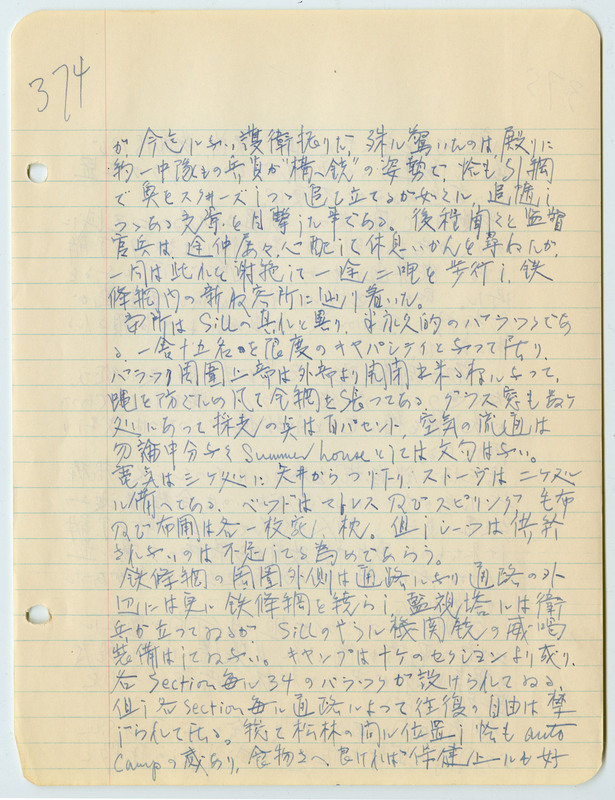 374
が、今迄にない護衛振りだ。殊に驚いたのは、殿りに
約一中隊もの兵員が"構へ銃"の姿勢で、恰も引網
で奥をスタートしつゝ追し立てるが如くに、追随し
つゝある光景を目撃した事である。後程聞くと監督
官兵は、途中屡々心配して休息いかんを尋ねたが、
一同は此れを謝絶して一途二哩を歩行し、鉄
條網内の新収容所に辿り着いた。
当所は Sillの其れと異り、半永久的のバラックであ
る。一舎十五名を限度のキャパシティとなって居り、
バラック周囲上部は外部より開閉出来る様になって、
蝿を防ぐための風で金網を張ってある。グラス窓も数ヶ
処にあって採光の点は百パセント、空気の流通は
勿論申分なく Summer houseとしては文句はない。
電気は三ヶ処に天井からつり下り、ストーヴは二ヶ処
に備へてある。ベッドはマトレス及びスプリング、毛布
及び布団は各一枚宛、枕。但しシーツは供給
されないのは不足してる為めであらう。
鉄條網の周囲外側は通路になり通路の外
辺には更に鉄條網を繞らし、監視塔には衛
兵が立ってゐるが、Sillのやうに機関銃の威嚇
装備はしてゐない。キャンプは十ケのセクションより成り、
各Section毎に34のバラックが設けられてゐる。
但し各Section毎に通路によって往復の自由は禁
じられて居る。総て松林の間に位置し恰も auto
Campの感あり、食物さへ良ければ保健上にも好